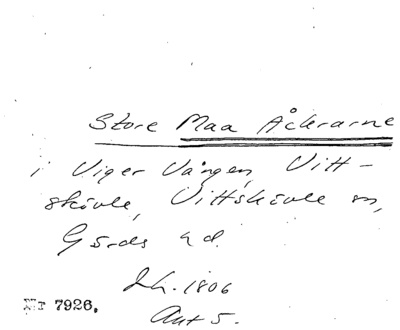 Store Maa Åckrarne
i Viger Vången, Vitt-
skövle, Vittskövle sn,
Gärds hd.
Lh. 1806
Akt 5.
Nr 7926.